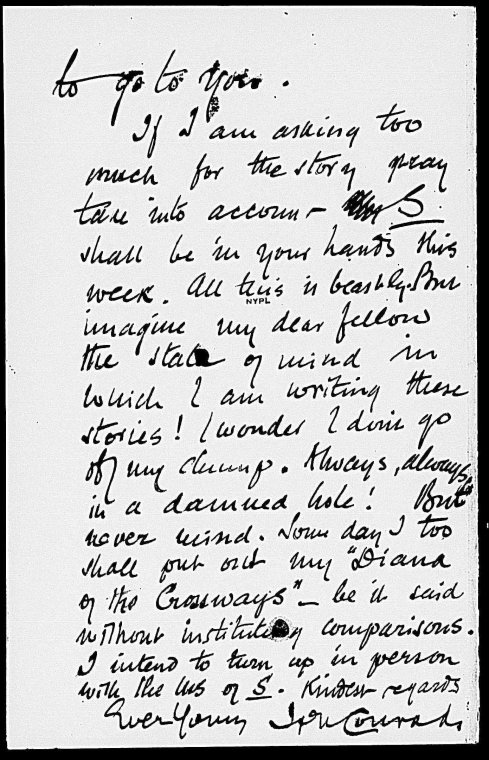 to go to you.
If I am asking too
much for the story pray
take into account S.
shall be in your hands this
week. All this is beastly. But
NYPL
imagine my dear fellow
the state of mind in
which I am writing these
stories! I wonder I don't go
off my chump. Always, always
in a damned hole! But
never mind. Some day I too
shall put out my "Diana
of the Crossways" — be it said
without instituting comparisons.
I intend to turn up in person
with the MS of S. Kindest regards
Ever Yours Jph Conrad.